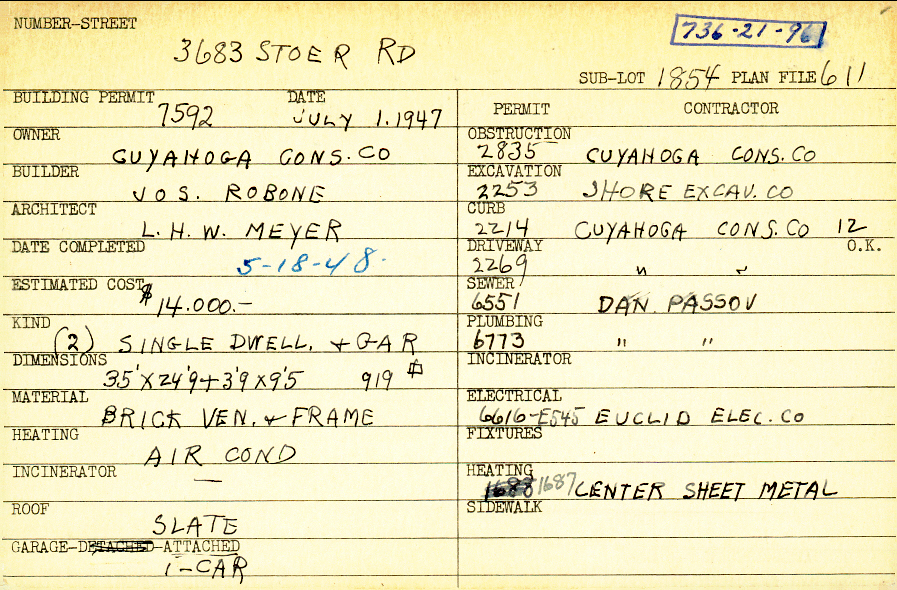 NUMBER-STREET
736-21-96
3683 STOER RD
SUB-LOT 1854 PLAN FILE 611
BUILDING PERMIT DATE
7592 JULY 1.1947
OWNER
CUYAHOGA CONS. CO
BUILDER
JOS. ROBONE
ARCHITECT
L. H. W. MEYER
DATE COMPLETED
5-18-48.
ESTIMATED COST
$14.000.-
KIND
(2) SINGLE DWELL. + GAR
DIMENSIONS
35'X24'9+3'9X9'5 919 #
MATERIAL
BRICK VEN. + FRAME
HEATING
AIR COND
INCINERATOR
—
ROOF
SLATE
GARAGE-DETACHED-ATTACHED
1-CAR
PERMIT CONTRACTOR
OBSTRUCTION
2835 CUYAHOGA CONS. CO
EXCAVATION
2253 SHORE EXCAV. CO
CURB
2214 CUYAHOGA CONS. CO 12
DRIVEWAY O.K.
2269 " "
SEWER
6551 DAN PASSOV
PLUMBING
6773 " "
INCINERATOR
ELECTRICAL
6616-E545 EUCLID ELEC. CO
FIXTURES
HEATING
1688 1687 CENTER SHEET METAL
SIDEWALK